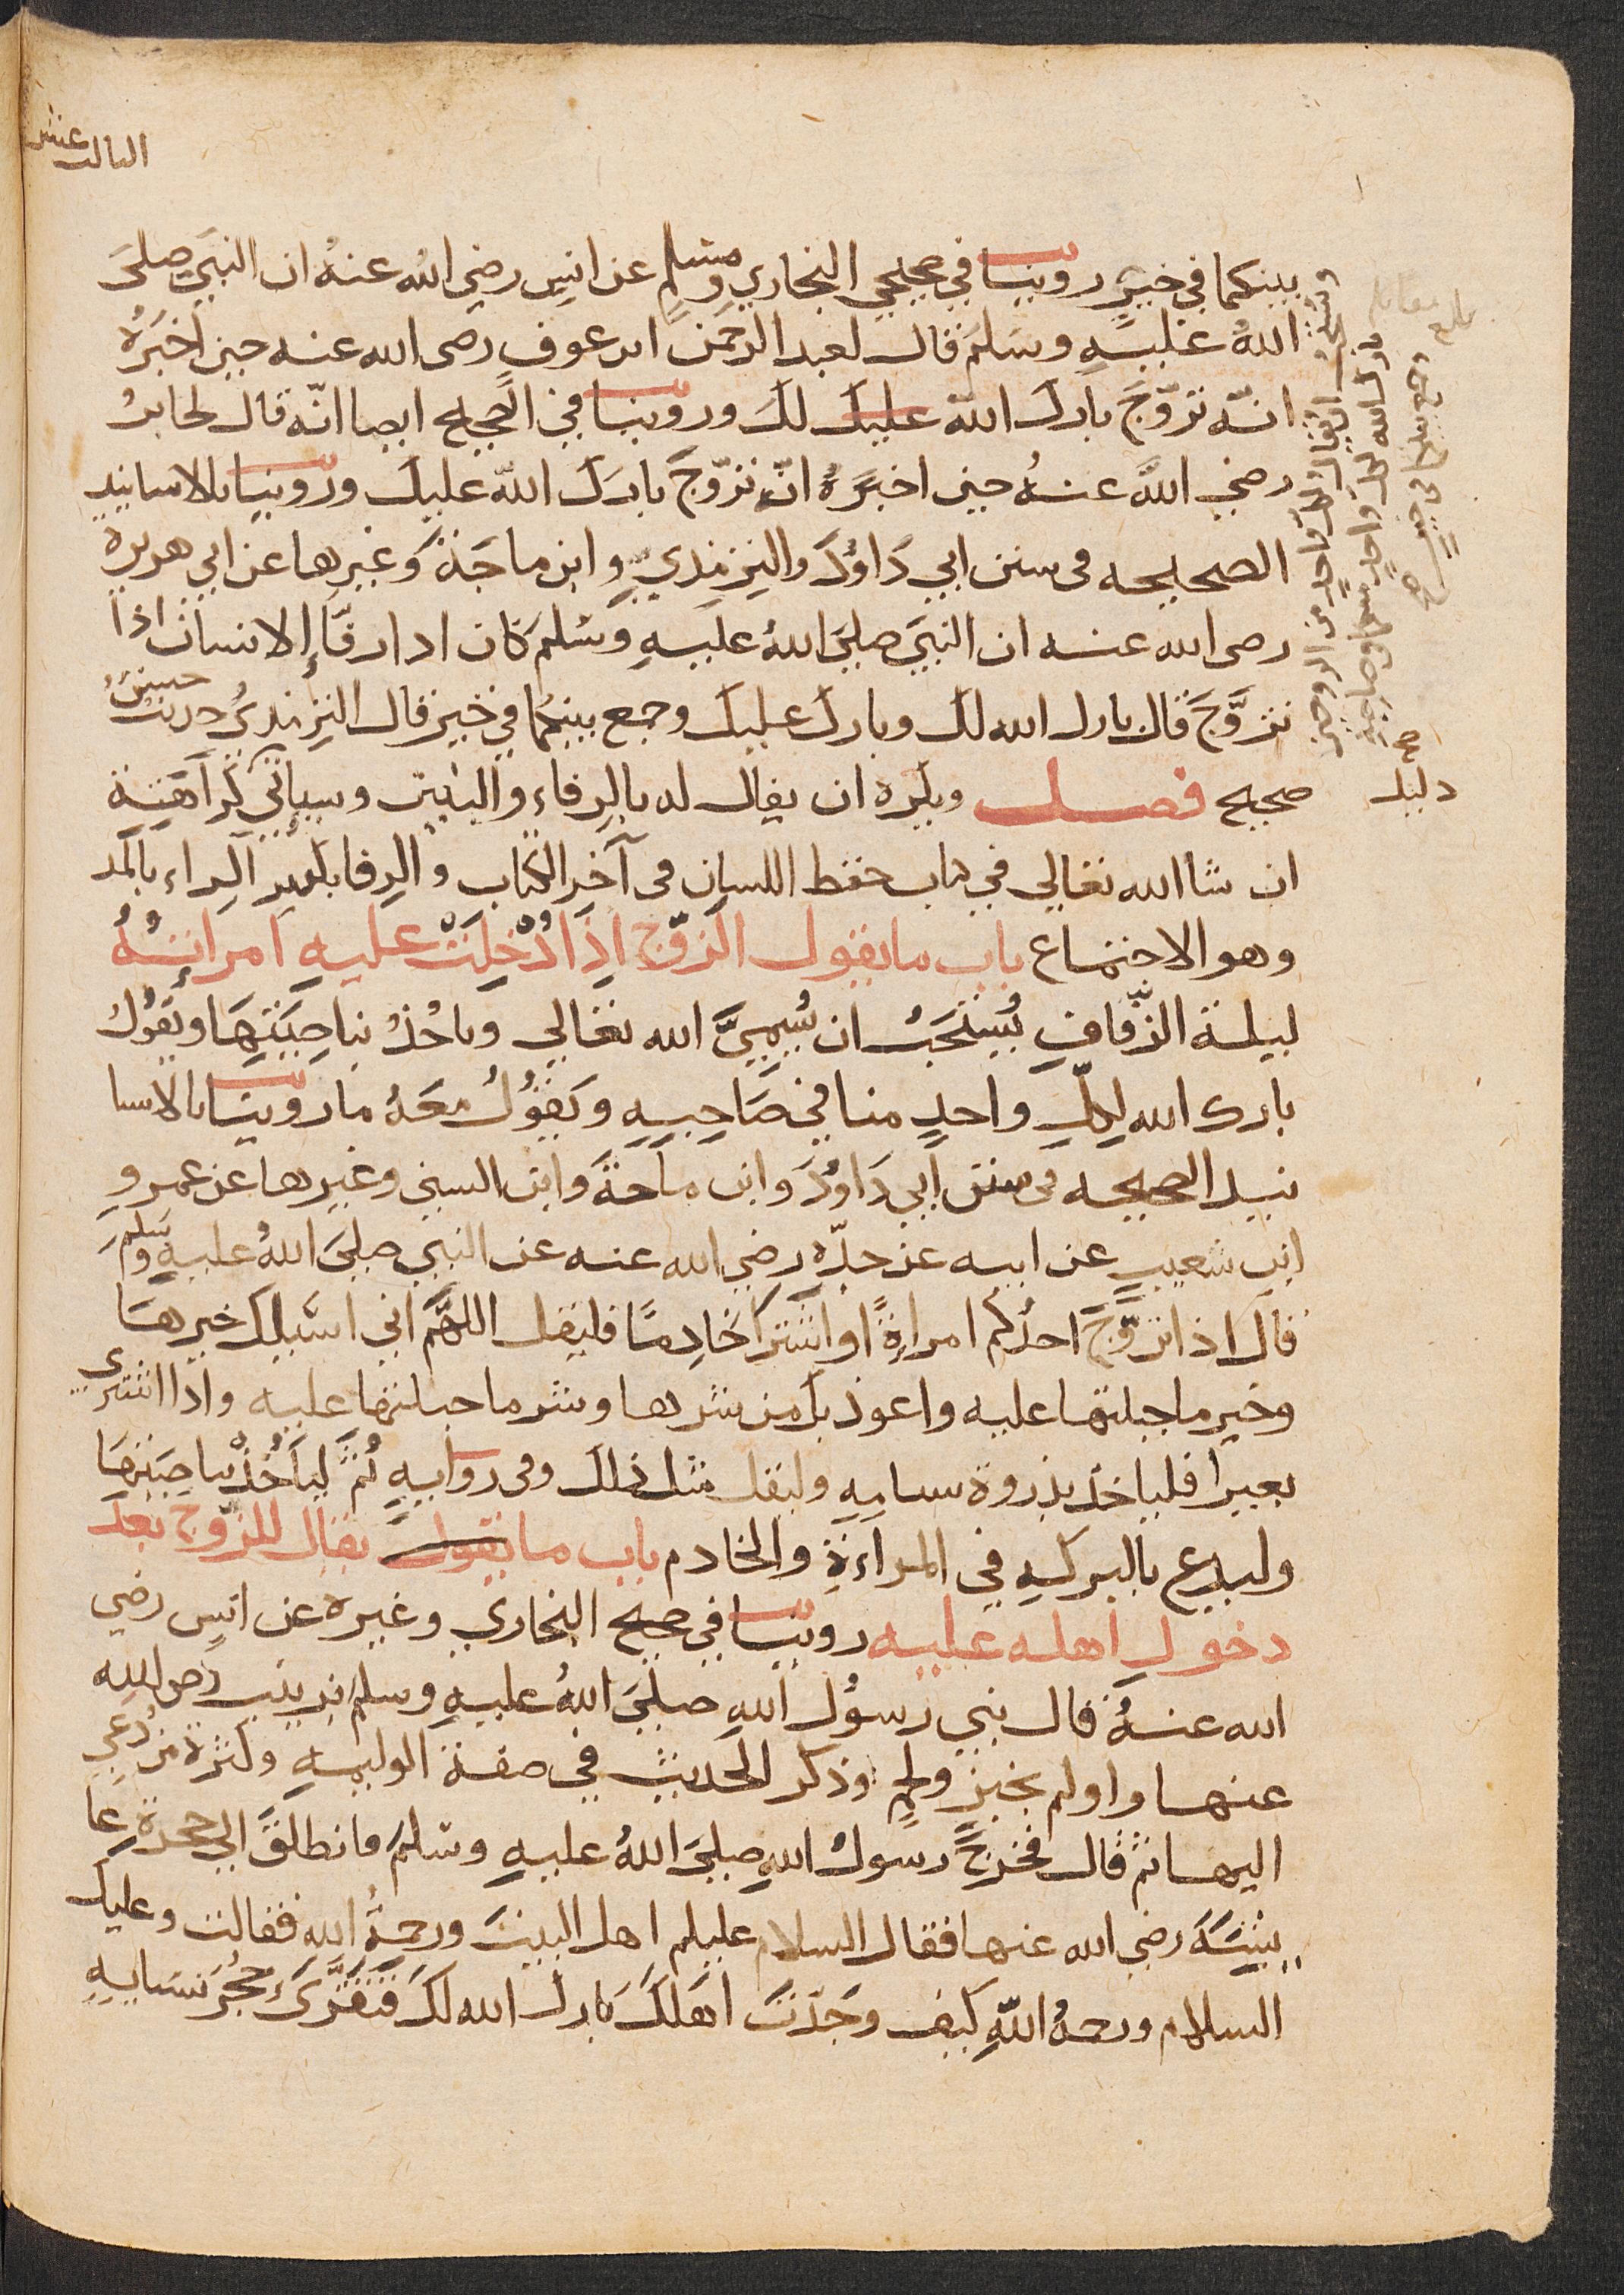 الثالث عشر
بينكما في خير روينا في صحيحي البخاري ومسلم عن انس رضي الله عنه ان النبي صلى
الله عليه وسلم قال لعبد الرحمن ابن عوف رضى الله عنه حين اخبره
انه تزوج بارك الله عليك لك وروينا في الصحيح ايضا انه قال لجابر
رضي الله عنه حين اخبره انه تزوج بارك الله عليك وروينا بالاسانيد
الصحيحه فى سنن ابي داؤد والترمذي وابن ماجة وغيرها عن ابي هريرة
رضى الله عنه ان النبي صلى الله عليه وسلم كان اذا رفأ الانسان اذا
تزوج قال بارك الله لك وبارك عليك وجمع بينكما في خير قال الترمذي حديث حسن
صحيح فصل ويكره ان يقال له بالرفاء والبنين وسياتي كراهته
ان شا الله تعالي في كتاب حفظ اللسان فى آخر الكتاب والرفا بكسر الراء بالمد
وهو الاجتماع باب ما يقول الزوج اذا ادخلت عليه امراته
ليلة الزفاف يستحب ان يسمي الله تعالي وياخذ بناصيتها ويقول
بارك الله لكل واحد منا في صاحبه ويقول معه ما روينا بالاسا
نيد الصحيحه فى سنن ابي داؤد وابن ماجة وابن السني وغيرها عن عمرو
ابن شعيب عن ابيه عن جده رضي الله عنه عن النبي صلى الله عليه وسلم
قال اذا تزوج احدكم امراة او اشترا خادما فليقل اللهم اني اسئلك خيرها
وخير ما جبلتها عليه واعوذ بك من شرها وشر ما جبلتها عليه واذا اشترى
بعيرا فلياخذ بذروة سنامه وليقل مثل ذلك وفى روايه ثم لياخذ بناصيتها
وليدع بالبركه في المراءة والخادم باب ما يقول يقال للزوج بعد
دخول اهله عليه روينا في صحيح البخاري وغيره عن انس رضي
الله عنه قال بني رسول الله صلى الله عليه وسلم بزينب رضى الله
عنها واولم بخبز ولحم وذكر الحديث في صفة الوليمه وكثرة من دعي
اليها ثم قال فخرج رسول الله صلى الله عليه وسلم فانطلق الي حجرة عا
يشة رضي الله عنها فقال السلام عليكم اهل البيت ورحمة الله فقالت وعليك
السلام ورحمة الله كيف وجدت اهلك بارك الله لك فتقرى حجر نسايه
ويستحب ان يقال لكل واحد من الزوجين
بارك الله لكل واحد منكما في صاحبه
وجمع بينكما في خير صح
بلغ مقابله
دليله